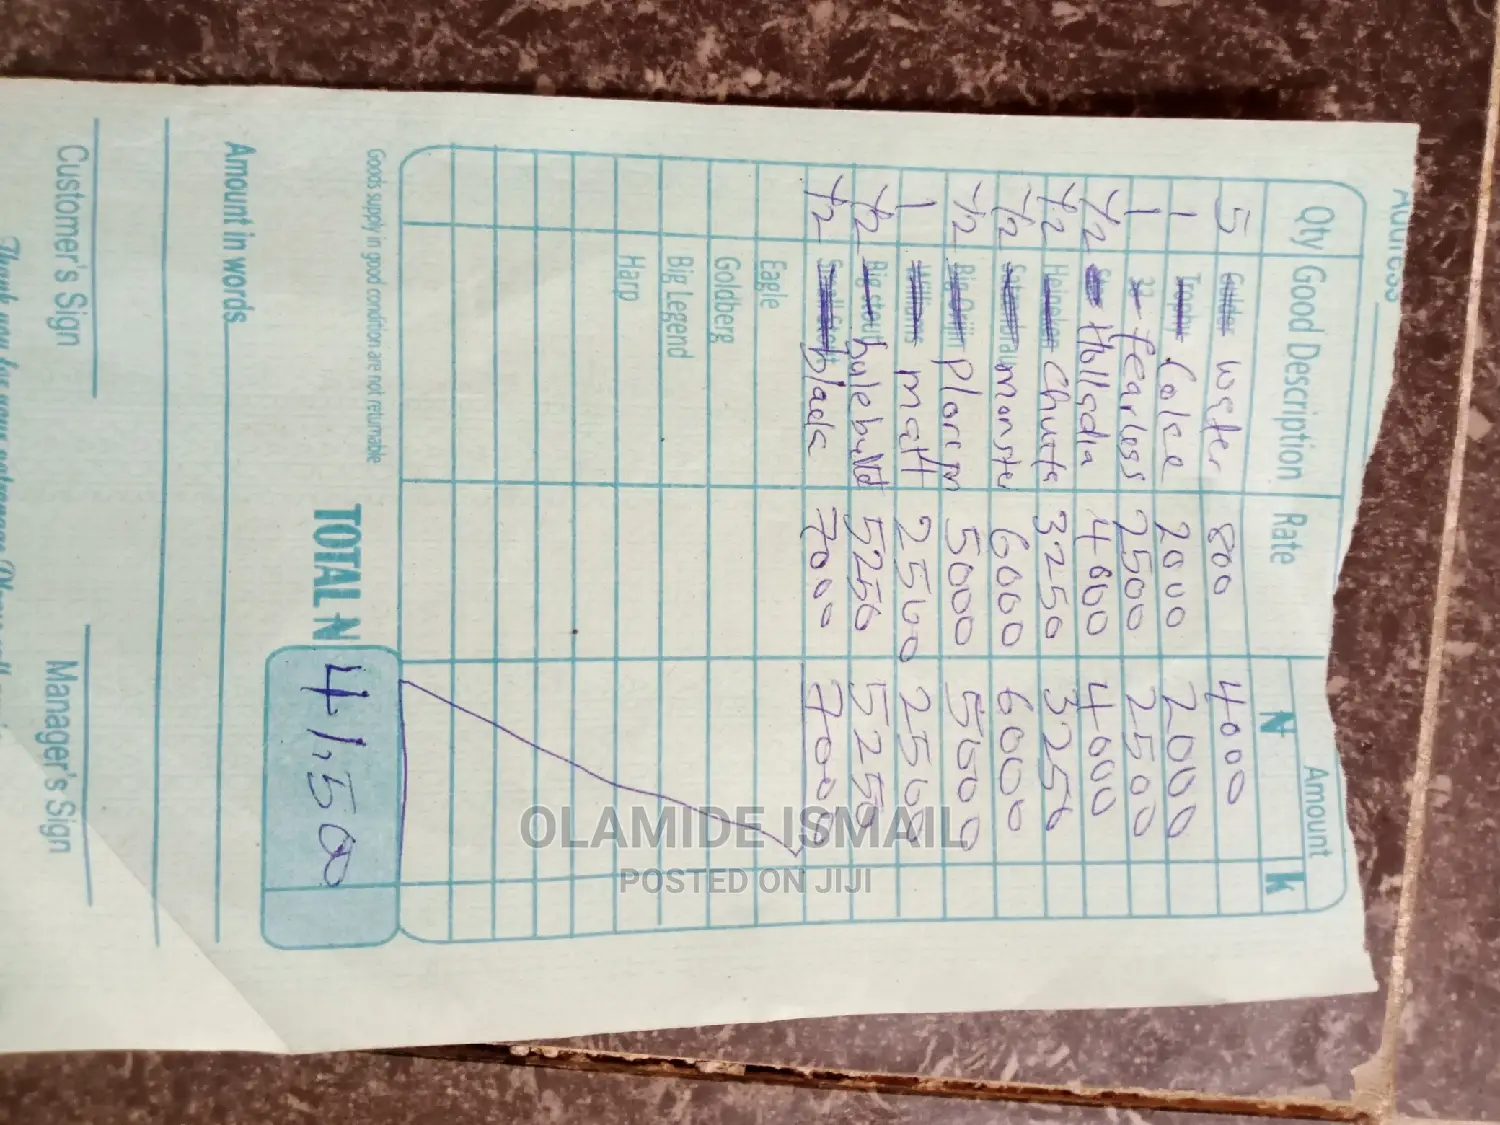 Address
Qty Good Description Rate Amount
₦ k
5 Gulder water 800 4000
1 Trophy Coke 2000 2000
1 33 fearless 2500 2500
1/2 Holladia 4000 4000
1/2 Heineken Chivita 3250 3250
1/2 monster 6000 6000
1/2 Big Orijin 5000 5000
1 Williams malt 2500 2500
1/2 Big stout 5250 5250
1/2 black 7000 7000
Eagle
Goldberg
Big Legend
Harp
Goods supply in good condition are not returnable
TOTAL ₦ 41,500
Amount in words
Customer's Sign Manager's Sign
Thank you for your patronage
OLAMIDE ISMAIL
POSTED ON JIJI